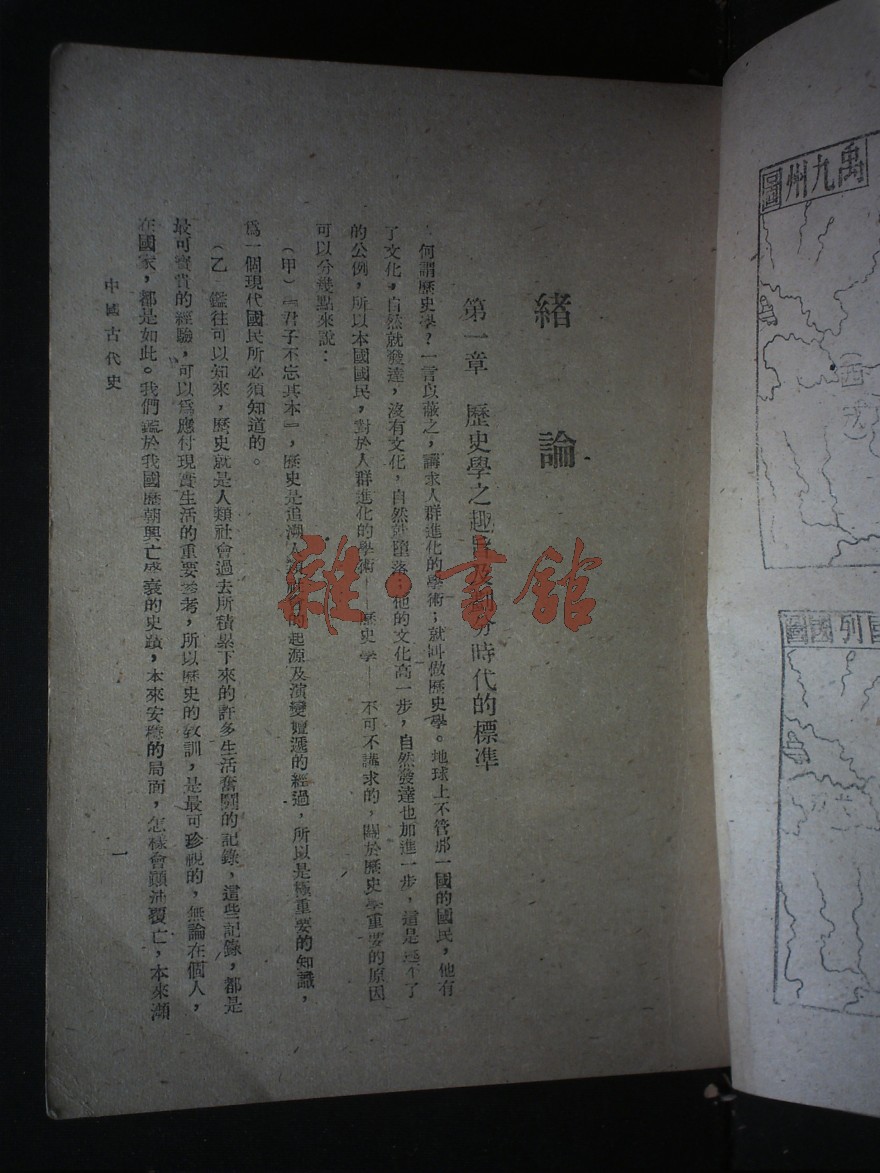 緒論
第一章　歷史學之趣旨及劃分時代的標準
何謂歷史學？一言以蔽之，講求人群進化的學術；就叫做歷史學。地球上不管那一國的國民，他有
了文化，自然就發達，沒有文化，自然就墮落，他的文化高一步，自然發達也加進一步，這是
的公例，所以本國國民，對於人群進化的學術——歷史學——不可不講求的，關於歷史學重要的原因
可以分幾點來說：
（甲）『君子不忘其本』，歷史是追溯人的起源及演變嬗遞的經過，所以是極重要的知識，
爲一個現代國民所必須知道的。
（乙　鑑往可以知來，歷史就是人類社會過去所積累下來的許多生活奮鬭的記錄，這些記錄，都是
最可寶貴的經驗，可以爲應付現實生活的重要參考，所以歷史的教訓，是最可珍視的，無論在個人，
在國家，都是如此。我們鑑於我國歷朝興亡盛衰的史蹟，本來安穩的局面，怎樣會顚沛覆亡，本來瀕
中國古代史
一
雜·書館
禹九州圖
（西戎）
國列國圖